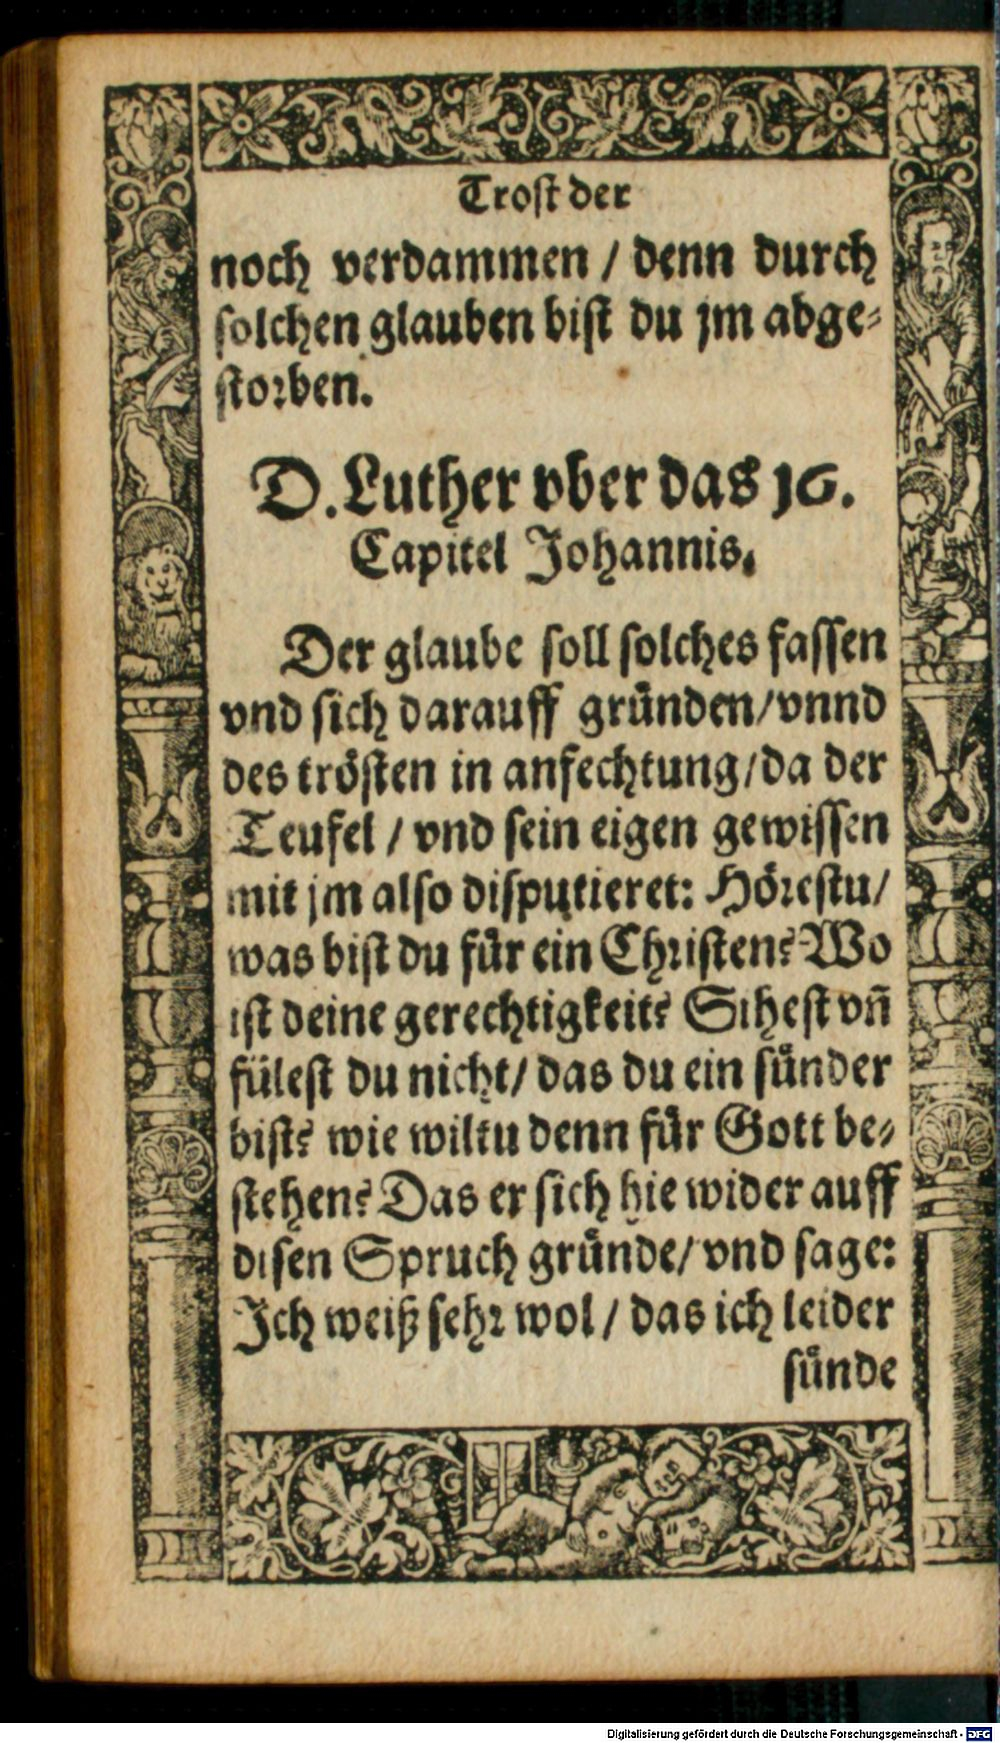 Trost der
noch verdammen / denn durch
solchen glauben bist du jm abge-
storben.
D. Luther vber das 16.
Capitel Johannis.
Der glaube soll solches fassen
vnd sich darauff gründen/vnnd
des trösten in anfechtung/da der
Teufel / vnd sein eigen gewissen
mit jm also disputieret: Hörestu/
was bist du für ein Christen? Wo
ist deine gerechtigkeit? Sihest vñ
fülest du nicht/ das du ein sünder
bist? wie wiltu denn für Gott be-
stehen? Das er sich hie wider auff
disen Spruch gründe/ vnd sage:
Ich weiß sehr wol / das ich leider
sünde
Digitalisierung gefördert durch die Deutsche Forschungsgemeinschaft - DFG